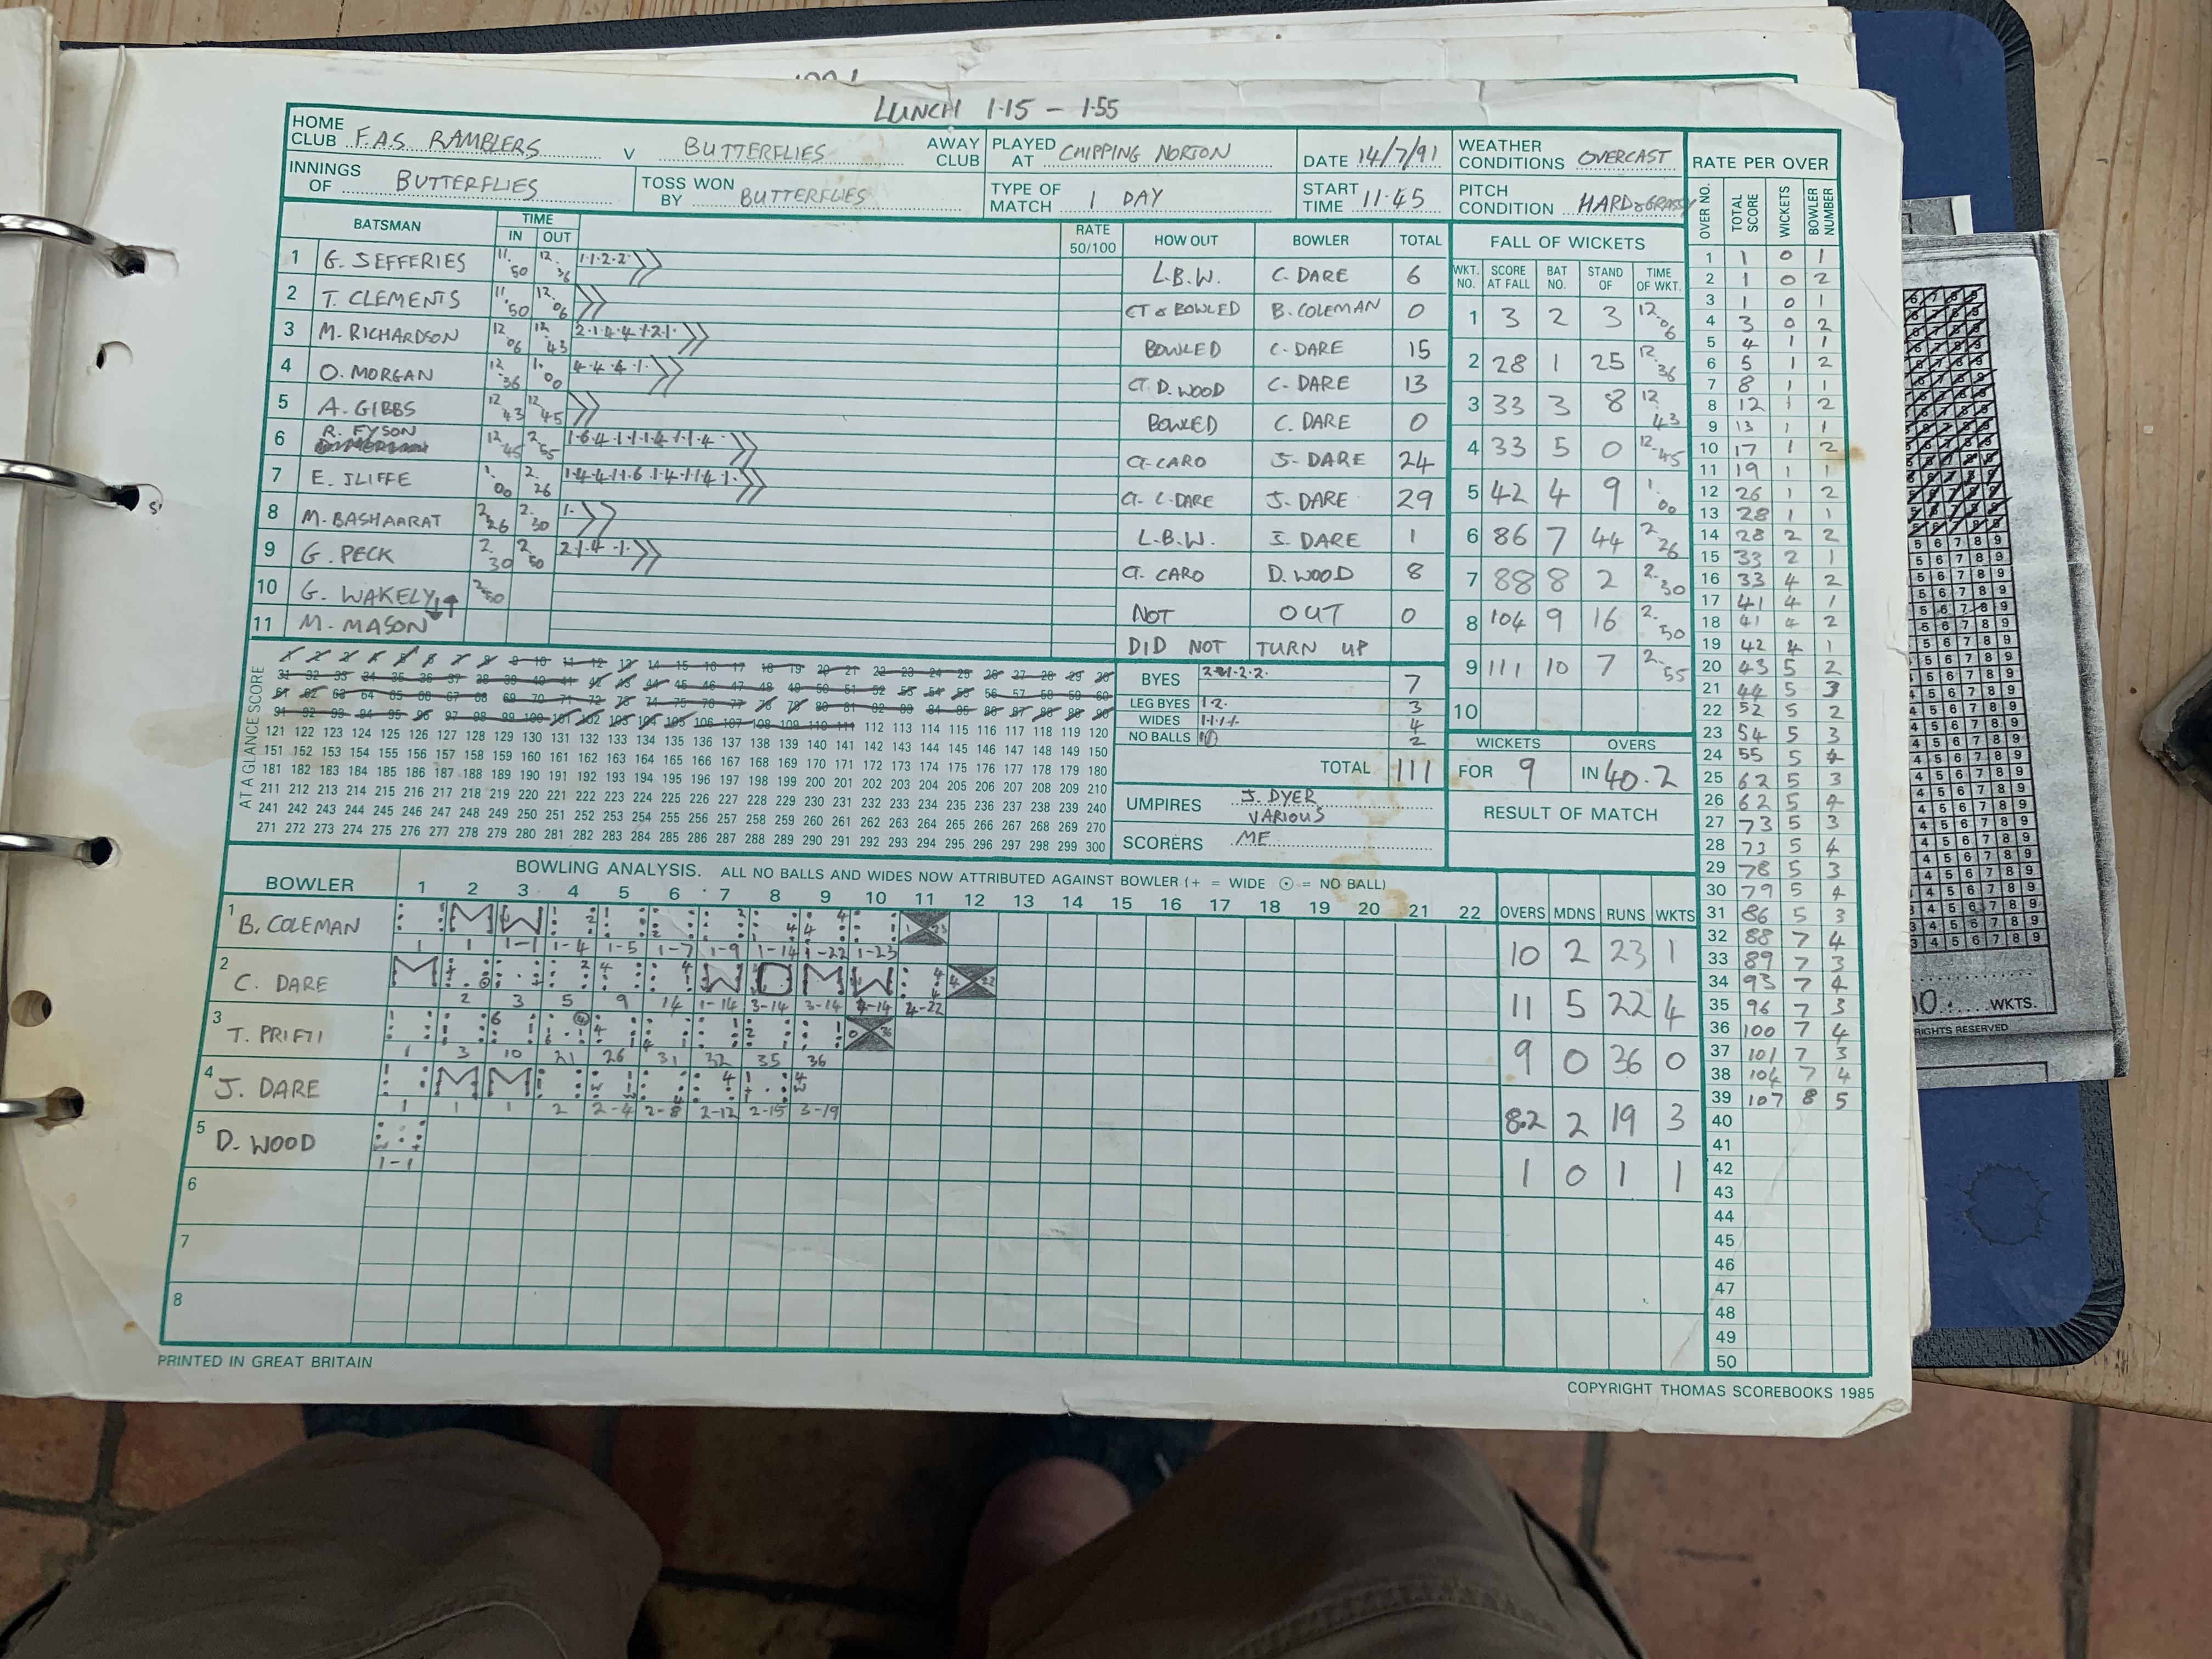 LUNCH 1·15 – 1·55
HOME CLUB F.A.S. RAMBLERS V BUTTERFLIES AWAY CLUB
PLAYED AT CHIPPING NORTON
DATE 14/7/91
WEATHER CONDITIONS OVERCAST
INNINGS OF BUTTERFLIES
TOSS WON BY BUTTERFLIES
TYPE OF MATCH 1 DAY
START TIME 11·45
PITCH CONDITION HARD & GRASSY
BATSMAN TIME IN OUT RATE 50/100 HOW OUT BOWLER TOTAL
1 G. JEFFERIES 11.50 12.36 1·1·2·2· L.B.W. C. DARE 6
2 T. CLEMENTS 11.50 12.06 CT & BOWLED B. COLEMAN 0
3 M. RICHARDSON 12.06 12.43 2·1·4·4·1·2·1· BOWLED C. DARE 15
4 O. MORGAN 12.36 1.00 4·4·4·1· CT. D. WOOD C. DARE 13
5 A. GIBBS 12.43 12.45 BOWLED C. DARE 0
6 R. FYSON 12.45 2.55 1·6·4·1·1·1·4·1·1·4· CT. CARO J. DARE 24
7 E. ILIFFE 1.00 2.26 1·4·4·1·1·6·1·4·1·1·4·1· CT. C. DARE J. DARE 29
8 M. BASHAARAT 2.26 2.30 1· L.B.W. J. DARE 1
9 G. PECK 2.30 2.50 2·1·4·1· CT. CARO D. WOOD 8
10 G. WAKELY 2.50 NOT OUT 0
11 M. MASON DID NOT TURN UP
FALL OF WICKETS
WKT. NO. SCORE AT FALL BAT NO. STAND OF TIME OF WKT.
1 3 2 3 12.06
2 28 1 25 12.36
3 33 3 8 12.43
4 33 5 0 12.45
5 42 4 9 1.00
6 86 7 44 2.26
7 88 8 2 2.30
8 104 9 16 2.50
9 111 10 7 2.55
10
AT A GLANCE SCORE
1 2 3 4 5 6 7 8 9 10 11 12 13 14 15 16 17 18 19 20 21 22 23 24 25 26 27 28 29 30
31 32 33 34 35 36 37 38 39 40 41 42 43 44 45 46 47 48 49 50 51 52 53 54 55 56 57 58 59 60
91 92 93 94 95 96 97 98 99 100 101 102 103 104 105 106 107 108 109 110 111 112 113 114 115 116 117 118 119 120
121 122 123 124 125 126 127 128 129 130 131 132 133 134 135 136 137 138 139 140 141 142 143 144 145 146 147 148 149 150
151 152 153 154 155 156 157 158 159 160 161 162 163 164 165 166 167 168 169 170 171 172 173 174 175 176 177 178 179 180
181 182 183 184 185 186 187 188 189 190 191 192 193 194 195 196 197 198 199 200 201 202 203 204 205 206 207 208 209 210
211 212 213 214 215 216 217 218 219 220 221 222 223 224 225 226 227 228 229 230 231 232 233 234 235 236 237 238 239 240
241 242 243 244 245 246 247 248 249 250 251 252 253 254 255 256 257 258 259 260 261 262 263 264 265 266 267 268 269 270
271 272 273 274 275 276 277 278 279 280 281 282 283 284 285 286 287 288 289 290 291 292 293 294 295 296 297 298 299 300
BYES 7
LEG BYES 1·2· 3
WIDES 1·1·1·1· 4
NO BALLS 2
TOTAL 111
WICKETS OVERS
FOR 9 IN 40.2
UMPIRES J. DYER
VARIOUS
SCORERS ME
RESULT OF MATCH
BOWLER BOWLING ANALYSIS. ALL NO BALLS AND WIDES NOW ATTRIBUTED AGAINST BOWLER (+ = WIDE ⊙ = NO BALL)
1 2 3 4 5 6 7 8 9 10 11 12 13 14 15 16 17 18 19 20 21 22 OVERS MDNS RUNS WKTS
1 B. COLEMAN 1 1 1-1 1-4 1-5 1-7 1-9 1-14 1-22 1-23 10 2 23 1
2 C. DARE 2 3 5 9 14 1-14 3-14 3-14 4-14 4-22 11 5 22 4
3 T. PRIFTI 1 3 10 21 26 31 32 35 36 9 0 36 0
4 J. DARE 1 1 1 2 2-4 2-8 2-12 2-15 3-19 8.2 2 19 3
5 D. WOOD 1-1 1 0 1 1
6
7
8
RATE PER OVER
OVER NO. TOTAL SCORE WICKETS BOWLER NUMBER
1 1 0 1
2 1 0 2
3 1 0 1
4 3 0 2
5 4 1 1
6 5 1 2
7 8 1 1
8 12 1 2
9 13 1 1
10 17 1 2
11 19 1 1
12 26 1 2
13 28 1 1
14 28 2 2
15 33 2 1
16 33 4 2
17 41 4 1
18 41 4 2
19 42 4 1
20 43 5 2
21 44 5 3
22 52 5 2
23 54 5 3
24 55 5 4
25 62 5 3
26 62 5 4
27 73 5 3
28 73 5 4
29 78 5 3
30 79 5 4
31 86 5 3
32 88 7 4
33 89 7 3
34 93 7 4
35 96 7 3
36 100 7 4
37 101 7 3
38 104 7 4
39 107 8 5
40
41
42
43
44
45
46
47
48
49
50
PRINTED IN GREAT BRITAIN
COPYRIGHT THOMAS SCOREBOOKS 1985
WKTS.
RIGHTS RESERVED